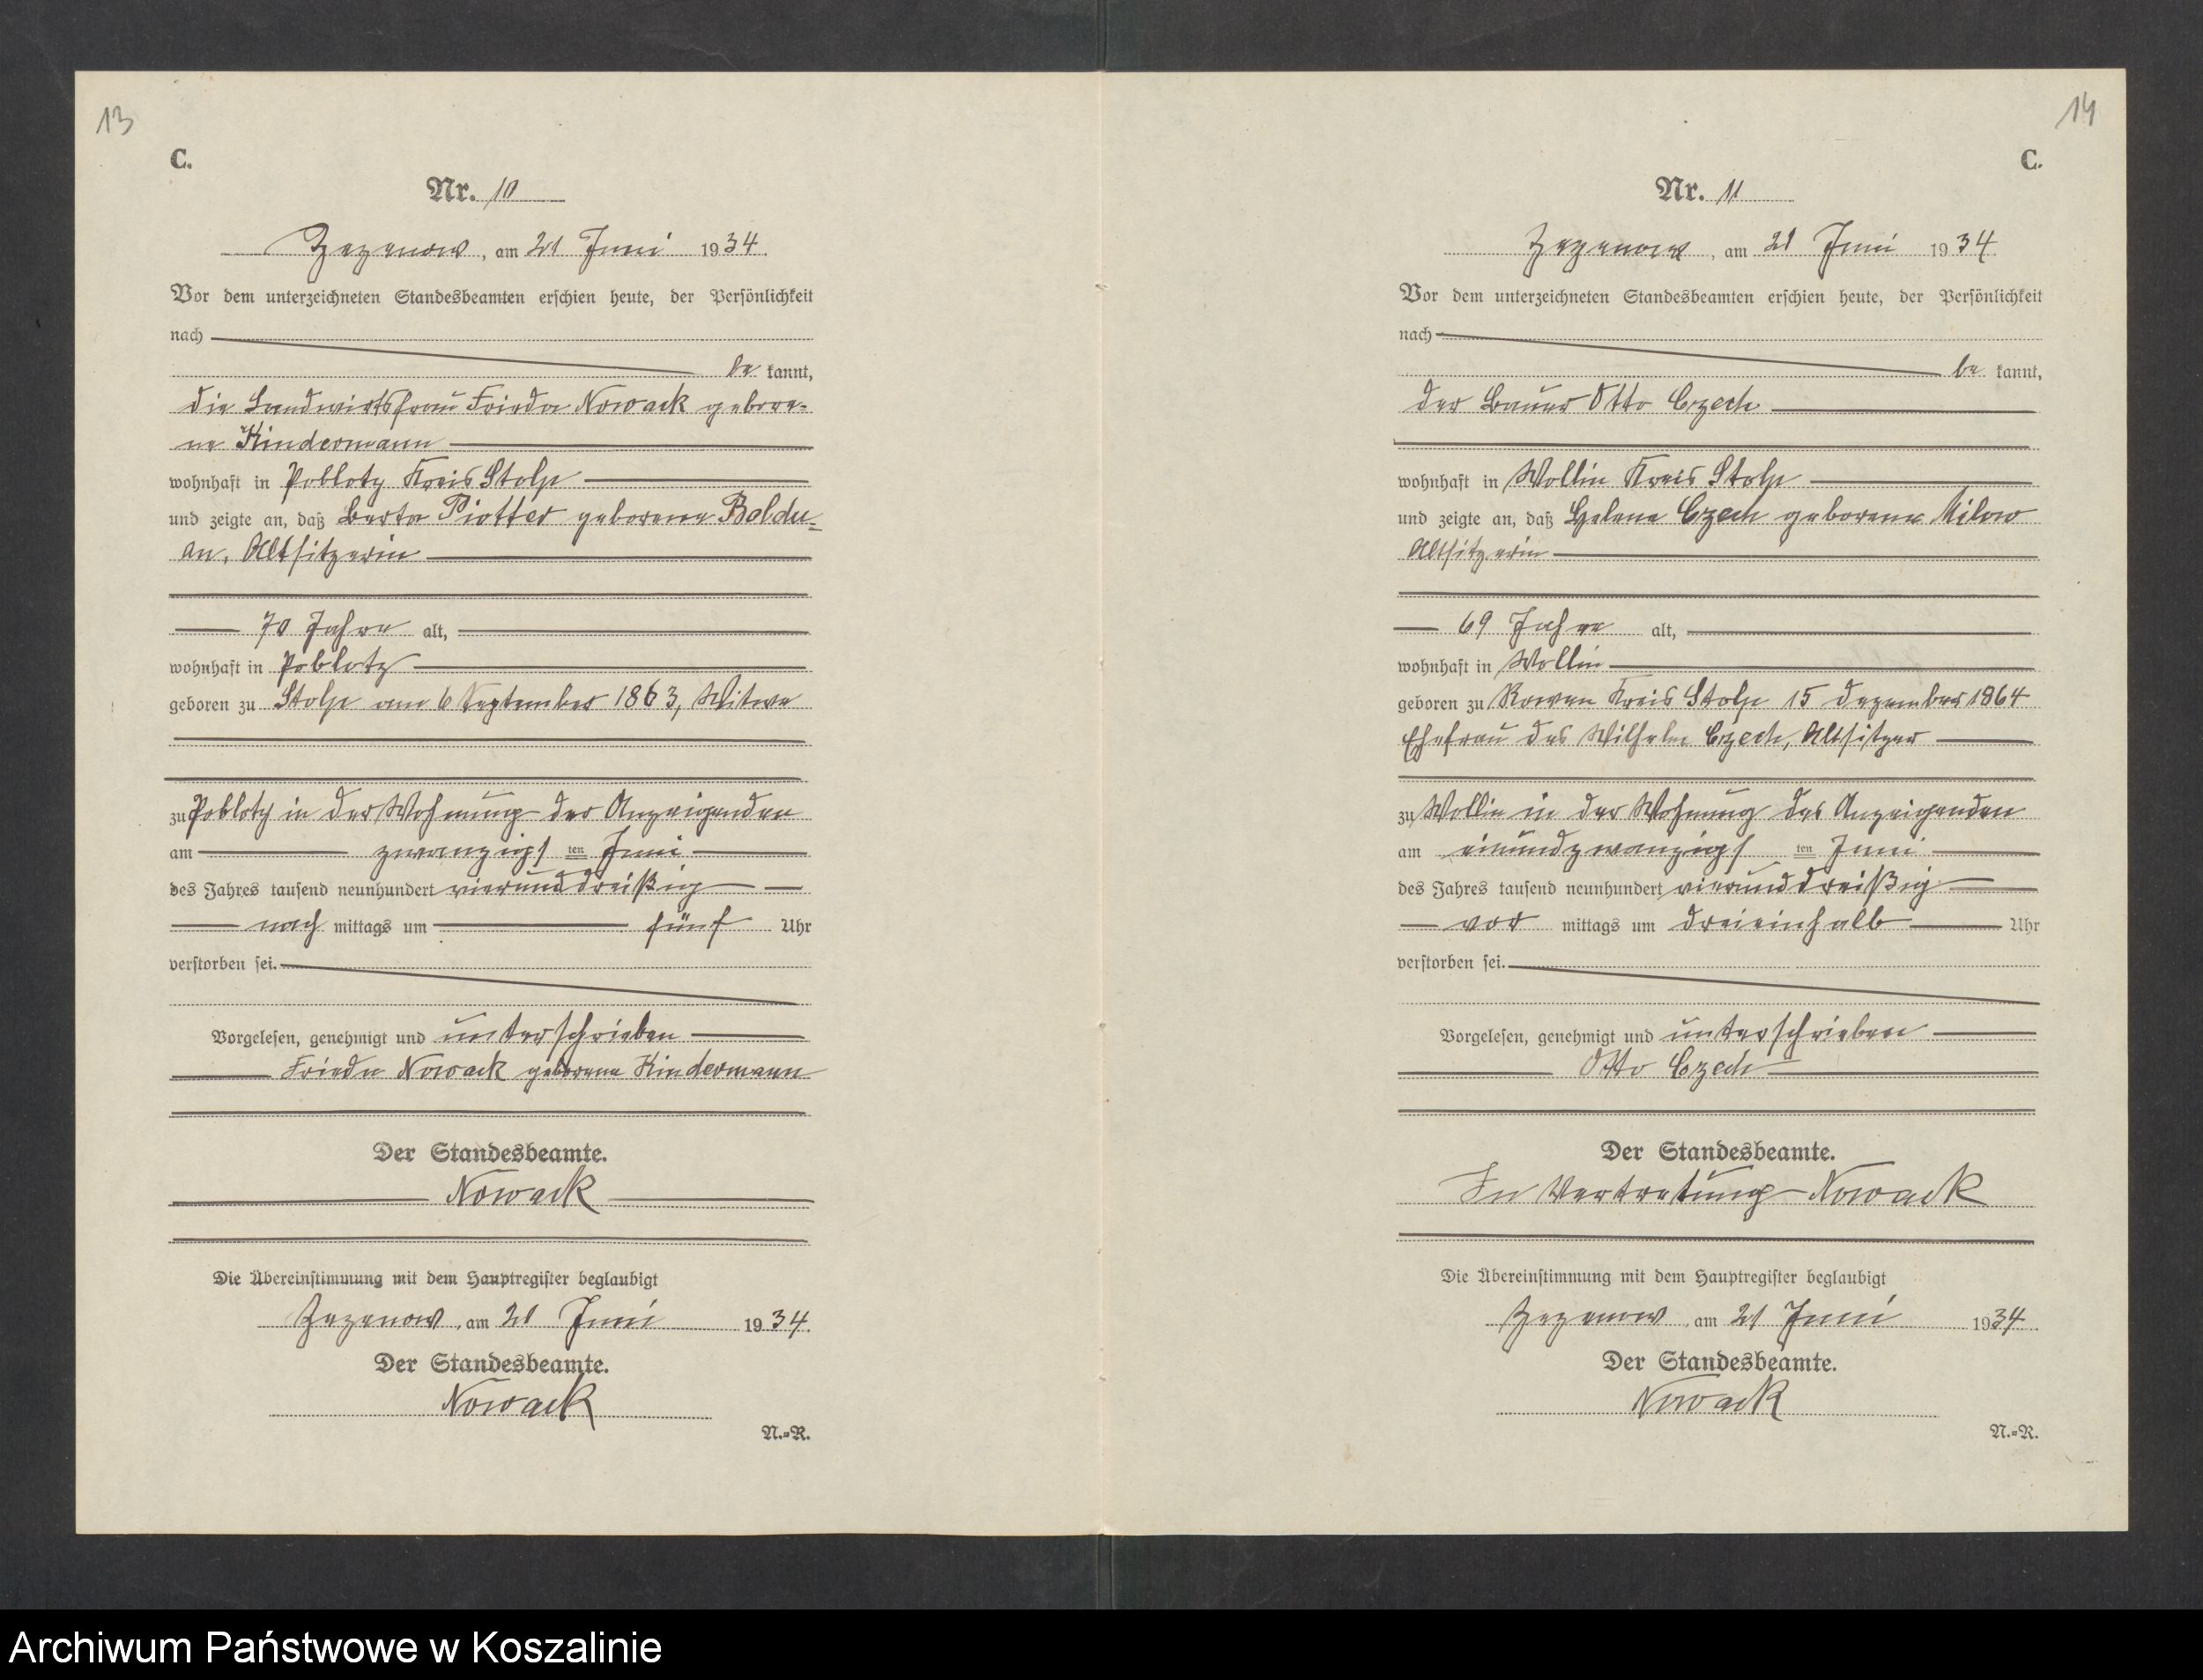 13
C.
Nr. 10
Zezenow, am 21 Juni 1934.
Vor dem unterzeichneten Standesbeamten erschien heute, der Persönlichkeit
nach
be kannt,
die Landwirtsfrau Frieda Nowack gebore-
ne Kindermann
wohnhaft in Poblotz Kreis Stolp
und zeigte an, daß Berta Piotter geboreneBoldu-
an, Altsitzerin
70 Jahre alt,
wohnhaft in Poblotz
geboren zu Stolp am 6 September 1863, Witwe
zu Poblotz in der Wohnung der Anzeigenden
am zwanzigsten Juni
des Jahres tausend neunhundert vierunddreißig
nach mittags um fünf Uhr
verstorben sei.
Vorgelesen, genehmigt und unterschrieben
Frieda Nowack geborene Kindermann
Der Standesbeamte.
Nowack
Die Übereinstimmung mit dem Hauptregister beglaubigt
Zezenow, am 21 Juni 1934.
Der Standesbeamte.
Nowack
N.=R.
14
C.
Nr. 11
Zezenow, am 21 Juni 1934.
Vor dem unterzeichneten Standesbeamten erschien heute, der Persönlichkeit
nach
be kannt,
der Bauer Otto Czech
wohnhaft in Wollin Kreis Stolp
und zeigte an, daß Helene Czech geborene Milow
Altsitzerin
69 Jahre alt,
wohnhaft in Wollin
geboren zu Rowen Kreis Stolp 15 Dezember 1864
Ehefrau des Wilhelm Czech, Altsitzer
zu Wollin in der Wohnung des Anzeigenden
am einundzwanzigsten Juni
des Jahres tausend neunhundert vierunddreißig
vor mittags um dreieinhalb Uhr
verstorben sei.
Vorgelesen, genehmigt und unterschrieben
Otto Czech
Der Standesbeamte.
In Vertretung Nowack
Die Übereinstimmung mit dem Hauptregister beglaubigt
Zezenow, am 21 Juni 1934.
Der Standesbeamte.
Nowack
N.=R.
Archiwum Państwowe w Koszalinie